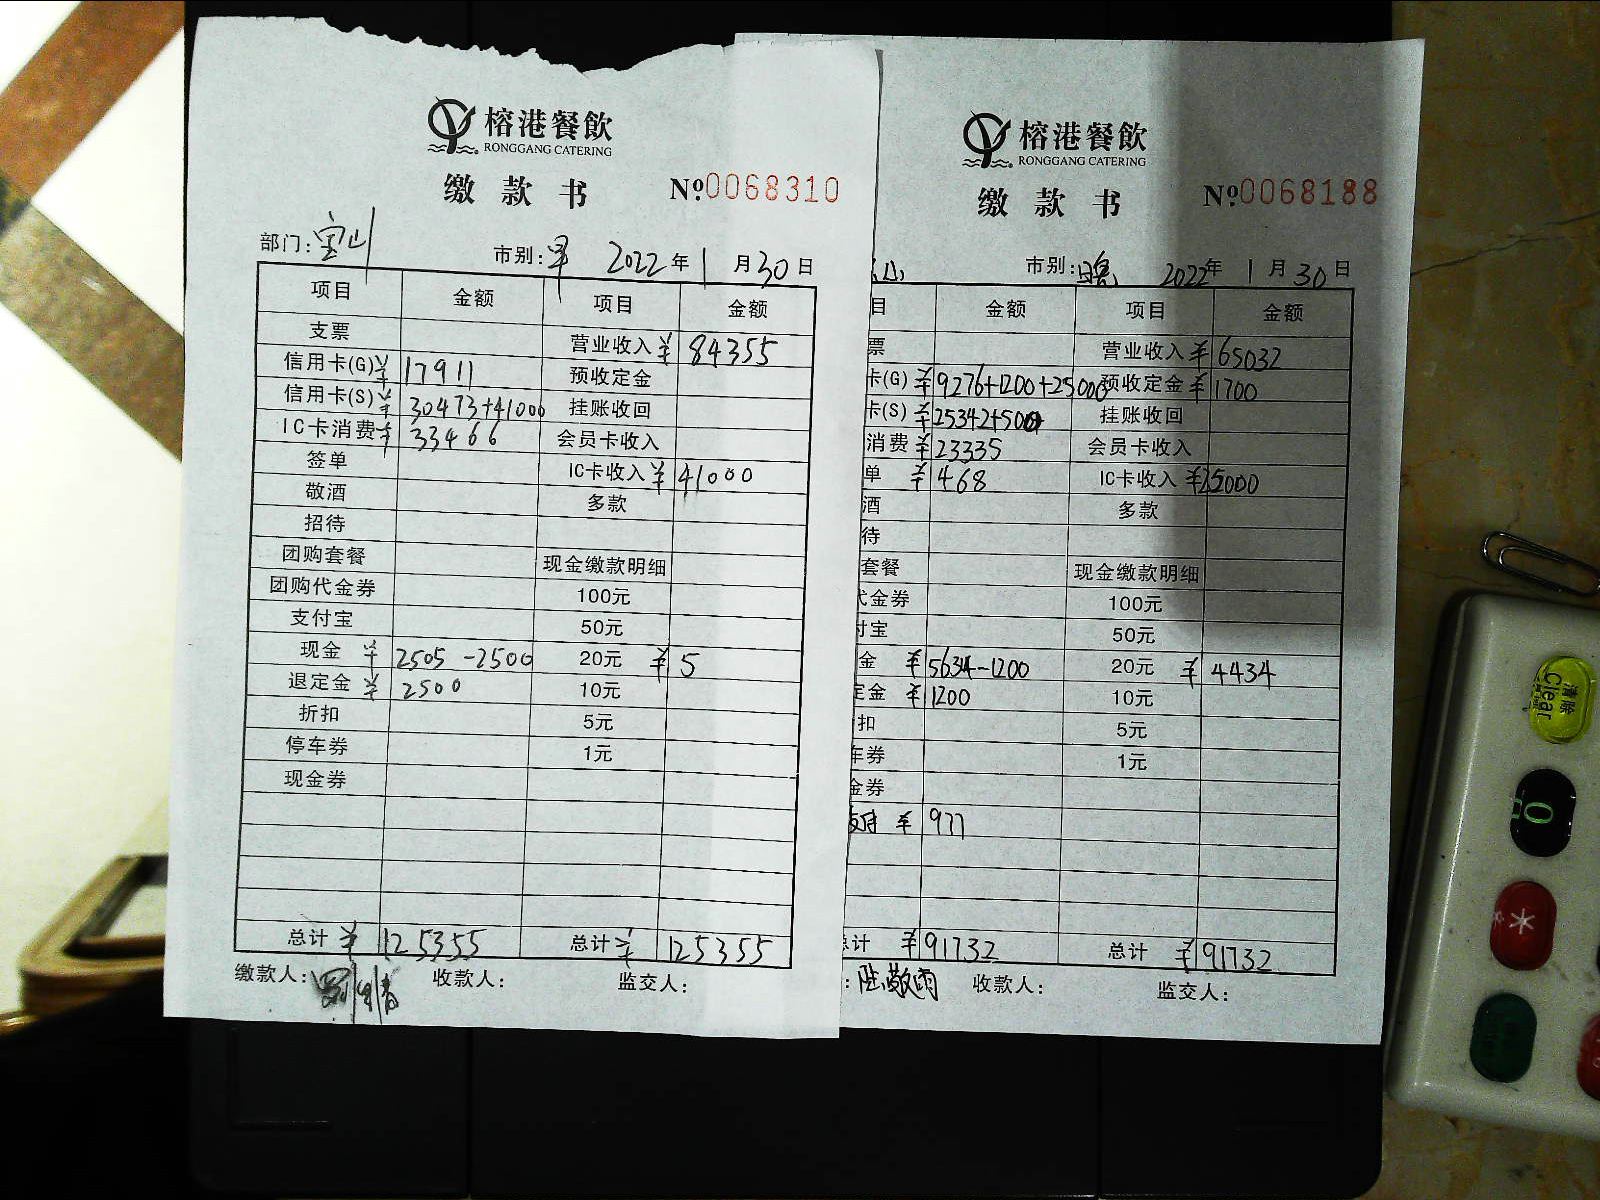 榕港餐飲
RONGGANG CATERING
缴款书 №0068310
部门: 宝山 市别: 早 2022年1月30日
项目 金额 项目 金额
支票 营业收入 ¥ 84355
信用卡(G) ¥ 17911 预收定金
信用卡(S) ¥ 30473+41000 挂账收回
IC卡消费 ¥ 33466 会员卡收入
签单 IC卡收入 ¥ 41000
敬酒 多款
招待
团购套餐 现金缴款明细
团购代金券 100元
支付宝 50元
现金 ¥ 2505-2500 20元 ¥ 5
退定金 ¥ 2500 10元
折扣 5元
停车券 1元
现金券
总计 ¥ 125355 总计 ¥ 125355
缴款人: 收款人: 监交人:
榕港餐飲
RONGGANG CATERING
缴款书 №0068188
山 市别: 晚 2022年1月30日
目 金额 项目 金额
票 营业收入 ¥ 65032
卡(G) ¥ 9276+1200+25000 预收定金 ¥ 1700
卡(S) ¥ 25342+500 挂账收回
消费 ¥ 23335 会员卡收入
单 ¥ 468 IC卡收入 ¥ 25000
酒 多款
待
套餐 现金缴款明细
代金券 100元
付宝 50元
金 ¥ 5634-1200 20元 ¥ 4434
定金 ¥ 1200 10元
扣 5元
车券 1元
金券
支付 ¥ 977
总计 ¥ 91732 总计 ¥ 91732
: 陆敬雨 收款人: 监交人:
清除
Clear
0
*